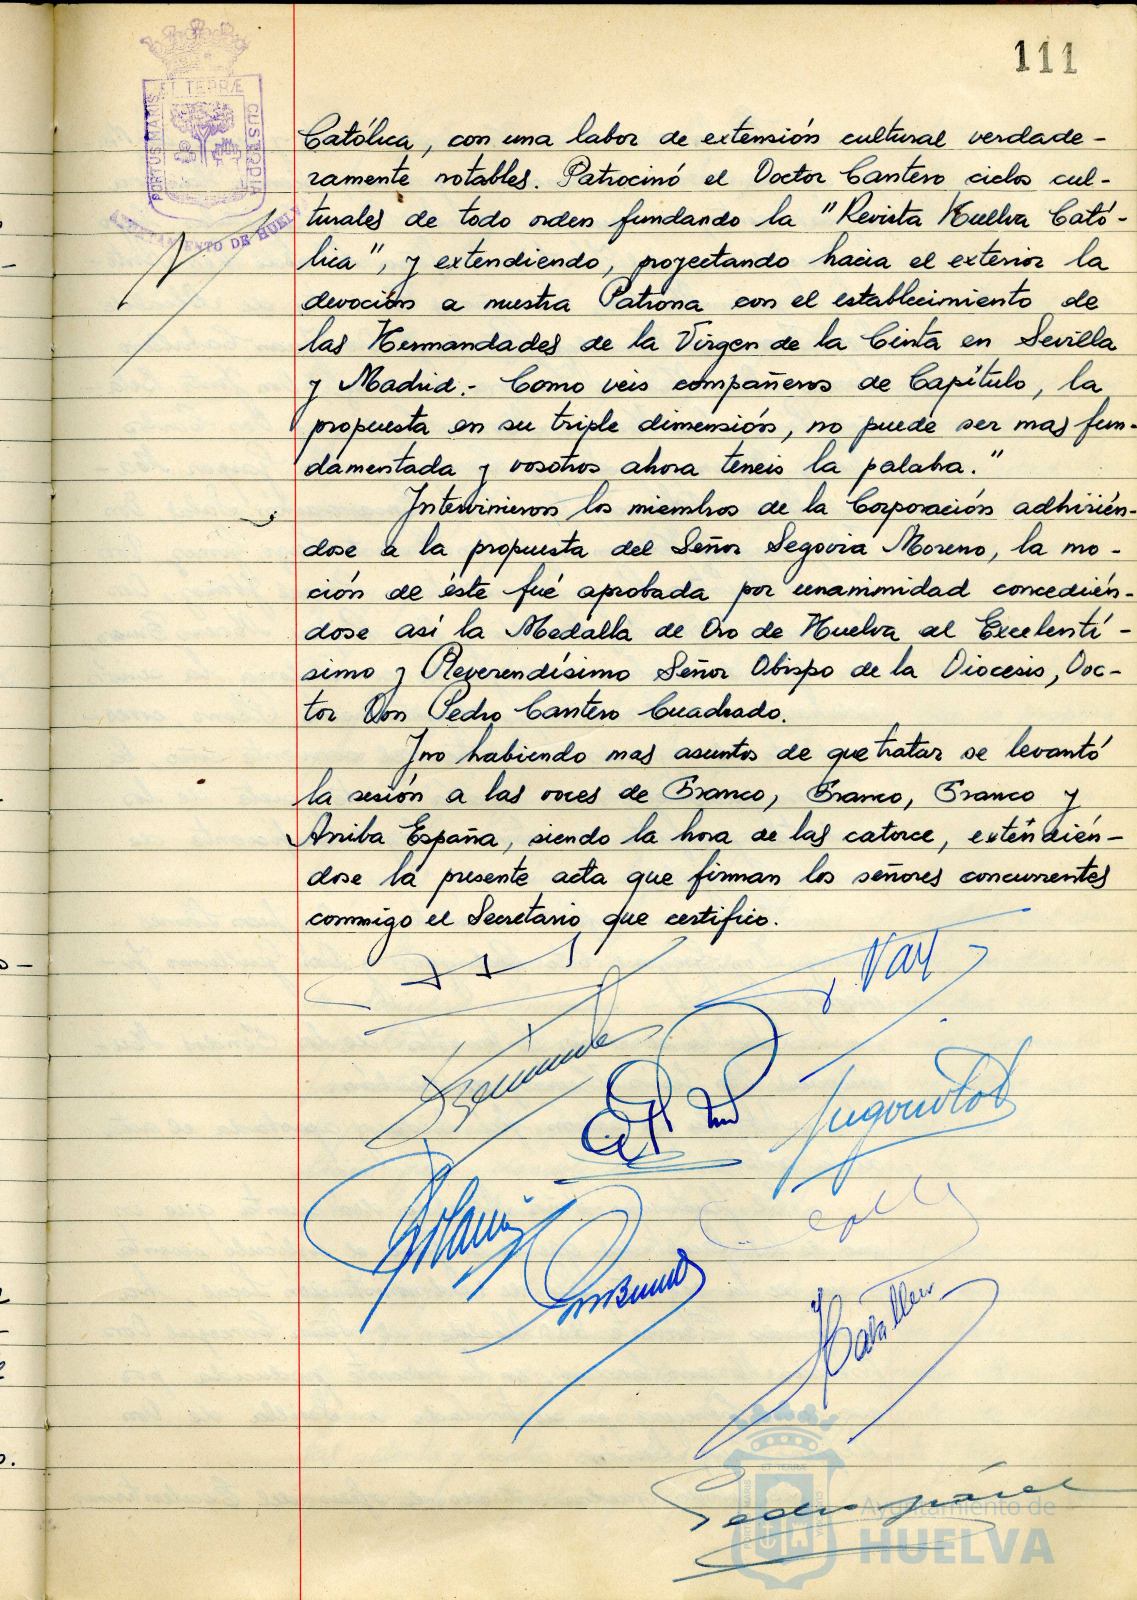 111
ET TERRÆ
PORTUS MARIS
CUSTODIA
AYUNTAMIENTO DE HUELV
Católica, con una labor de extensión cultural verdade-
ramente notables. Patrocinó el Doctor Cantero ciclos cul-
turales de todo orden fundando la "Revista Huelva Cató-
lica", y extendiendo, proyectando hacia el exterior la
devoción a nuestra Patrona con el establecimiento de
las Hermandades de la Virgen de la Cinta en Sevilla
y Madrid.- Como veis compañeros de Capítulo, la
propuesta en su triple dimensión, no puede ser mas fun-
damentada y vosotros ahora teneis la palabra."
Intervinieron los miembros de la Corporación adhirién-
dose a la propuesta del Señor Segovia Moreno, la mo-
ción de éste fué aprobada por unanimidad concedién-
dose así la Medalla de Oro de Huelva al Excelentí-
simo y Reverendísimo Señor Obispo de la Diocesis, Doc-
tor Don Pedro Cantero Cuadrado.
Y no habiendo mas asuntos de que tratar se levantó
la sesión a las voces de Franco, Franco, Franco y
Arriba España, siendo la hora de las catorce, extendién-
dose la presente acta que firman los señores concurrentes
conmigo el Secretario que certifico.
Pedro
Ayuntamiento de
HUELVA